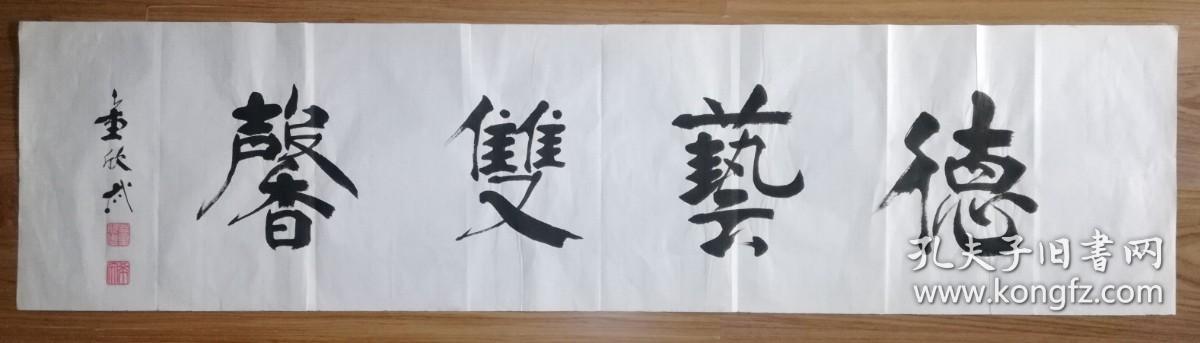 德藝雙馨
童欣
孔夫子旧书网
www.kongfz.com